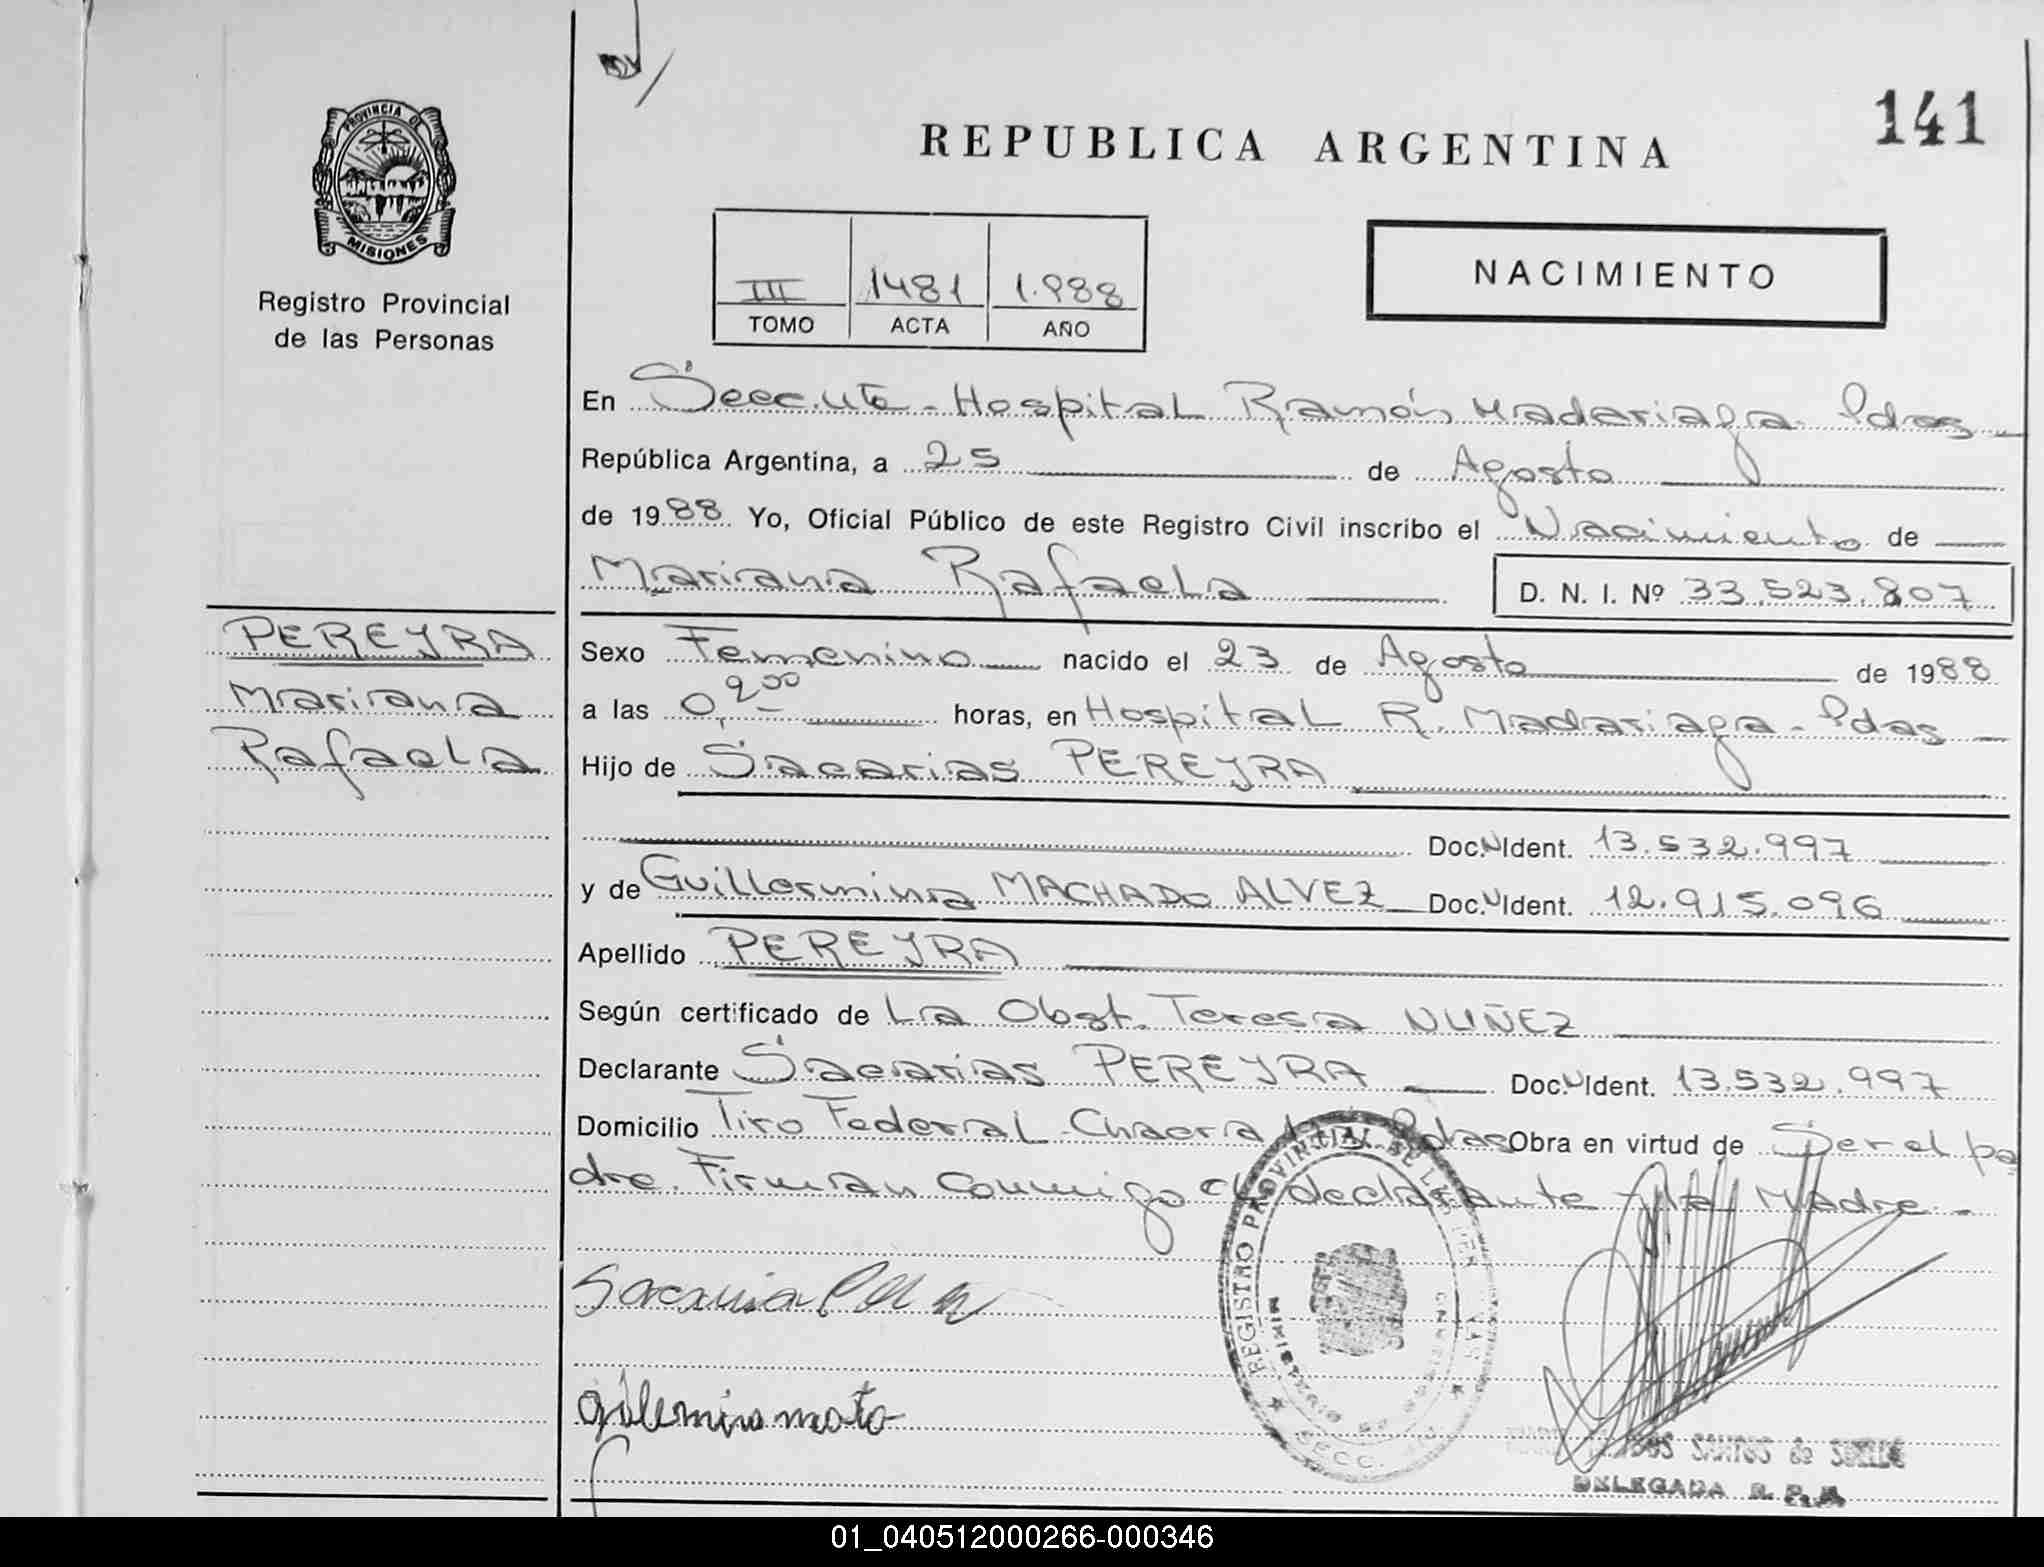 141
REPUBLICA ARGENTINA
PROVINCIA DE
MISIONES
Registro Provincial
de las Personas
III 1481 1.988
TOMO ACTA AÑO
NACIMIENTO
En Secc. Hospital Ramón Madariaga. Pdas
República Argentina, a 25 de Agosto
de 1988 Yo, Oficial Público de este Registro Civil inscribo el Nacimiento de
Mariana Rafaela D. N. I. Nº 33.523.807
PEREYRA
Mariana
Rafaela
Sexo Femenino nacido el 23 de Agosto de 1988
a las 0,200 horas, en Hospital R. Madariaga - Pdas
Hijo de Sacarias PEREYRA
Doc.NIdent. 13.532.997
y de Guillermina MACHADO ALVEZ Doc.NIdent. 12.915.096
Apellido PEREYRA
Según certificado de La Obst. Teresa NUÑEZ
Declarante Sacarias PEREYRA Doc.NIdent. 13.532.997
Domicilio Tiro Federal - Chacra Pdas Obra en virtud de Ser el pa
dre. Firman Conmigo el declarante y la Madre.-
REGISTRO PROVINCIAL DE LAS PERSONAS
SECC.
SANTOS de
DELEGADA R. P. P.
01_040512000266-000346